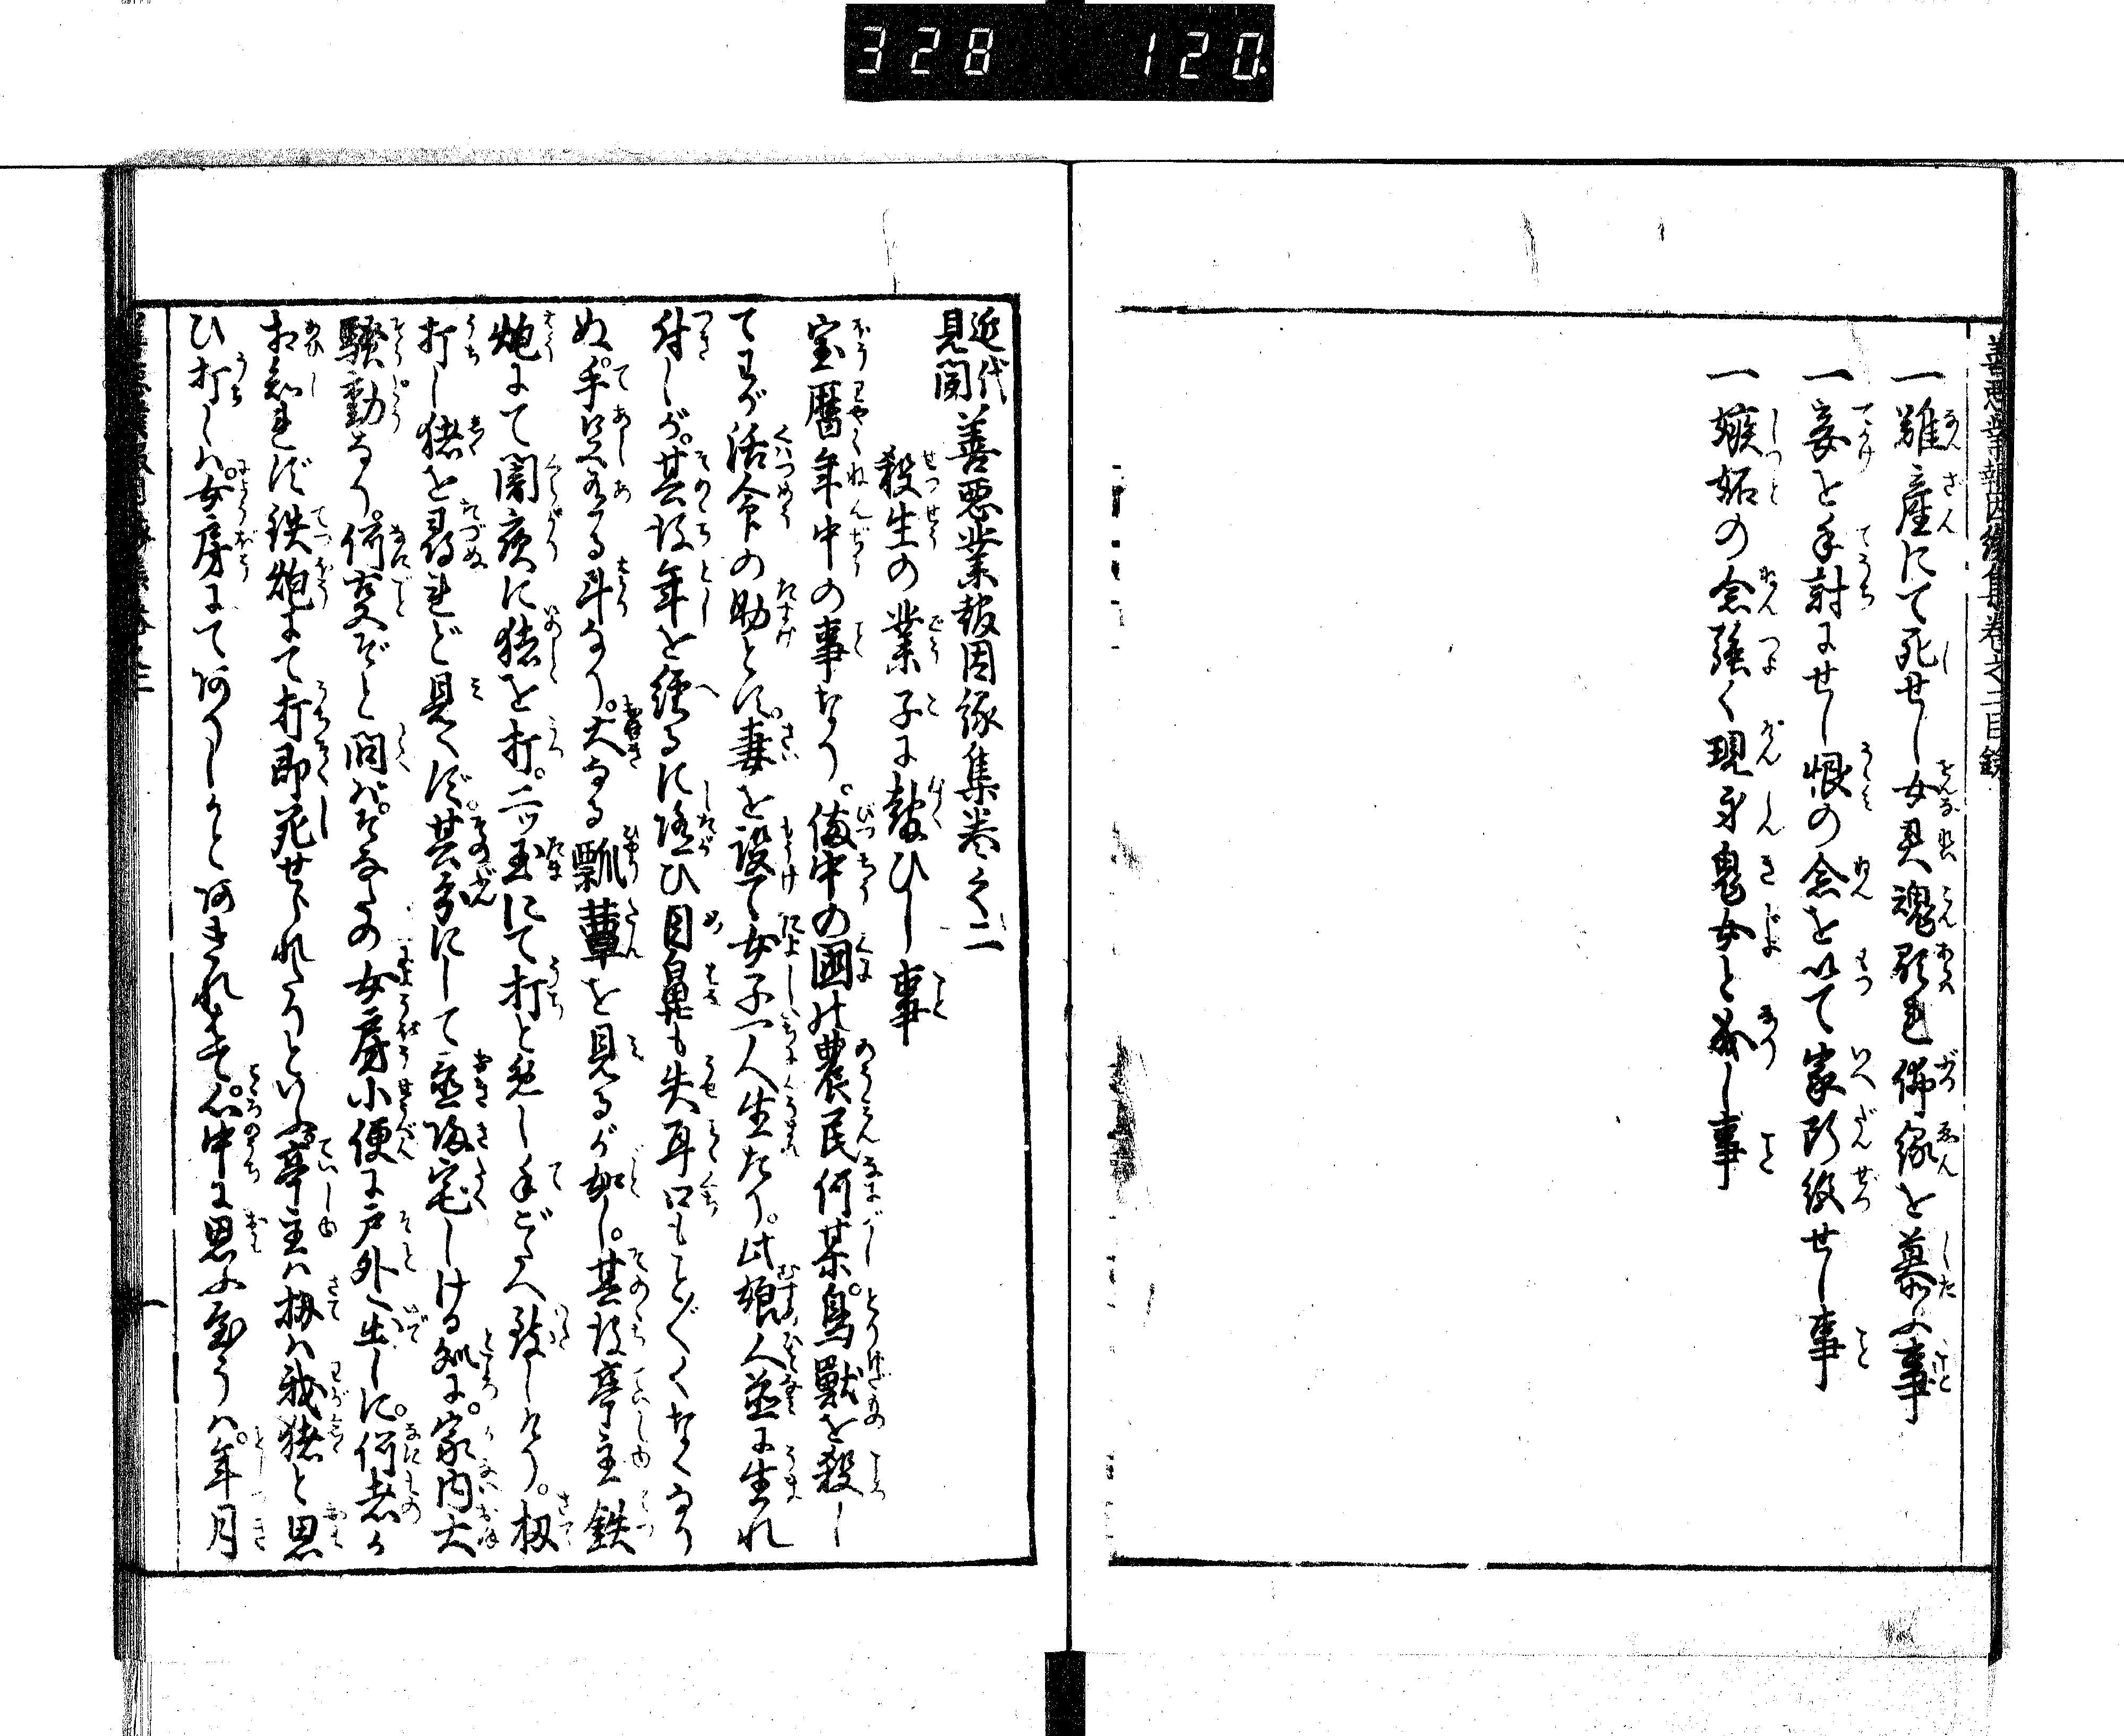 328 120
善悪業報因縁集巻之二目録
一難産にて死せし女其魂顕れ佛縁を慕ふ事
一妾を手討にせし恨の念を以て家断絶せし事
一嫉妬の念強く現身鬼女と成し事
近代見聞 善悪業報因縁集巻之二
殺生の業子に報ひし事
宝暦年中の事なり。備中の国の農民何某。鳥獣を殺し
てわが活命の助とす。妻を設て女子一人生たり。此娘人並に生れ
付しが。其後年を経るに随ひ目鼻も失耳口もことごとくなくなり
ぬ。手足有る斗なり。大なる瓢蕈を見るが如し。其後亭主鉄
炮にて闇夜に猪を打。二ツ玉にて打と覚し手ごたへ致しけり。扨
打し猪を尋れど見へず。其分にして立帰宅しける処に。家内大
騒動なり。何事ぞと問ば。そなたの女房小便に戸外へ出しに。何者か
相知れず鉄炮にて打即死せられたりといふ。亭主ハ扨ハ我猪と思
ひ打しハ女房にてありしかとあきれはて。心中に思ふ金うハ。年月